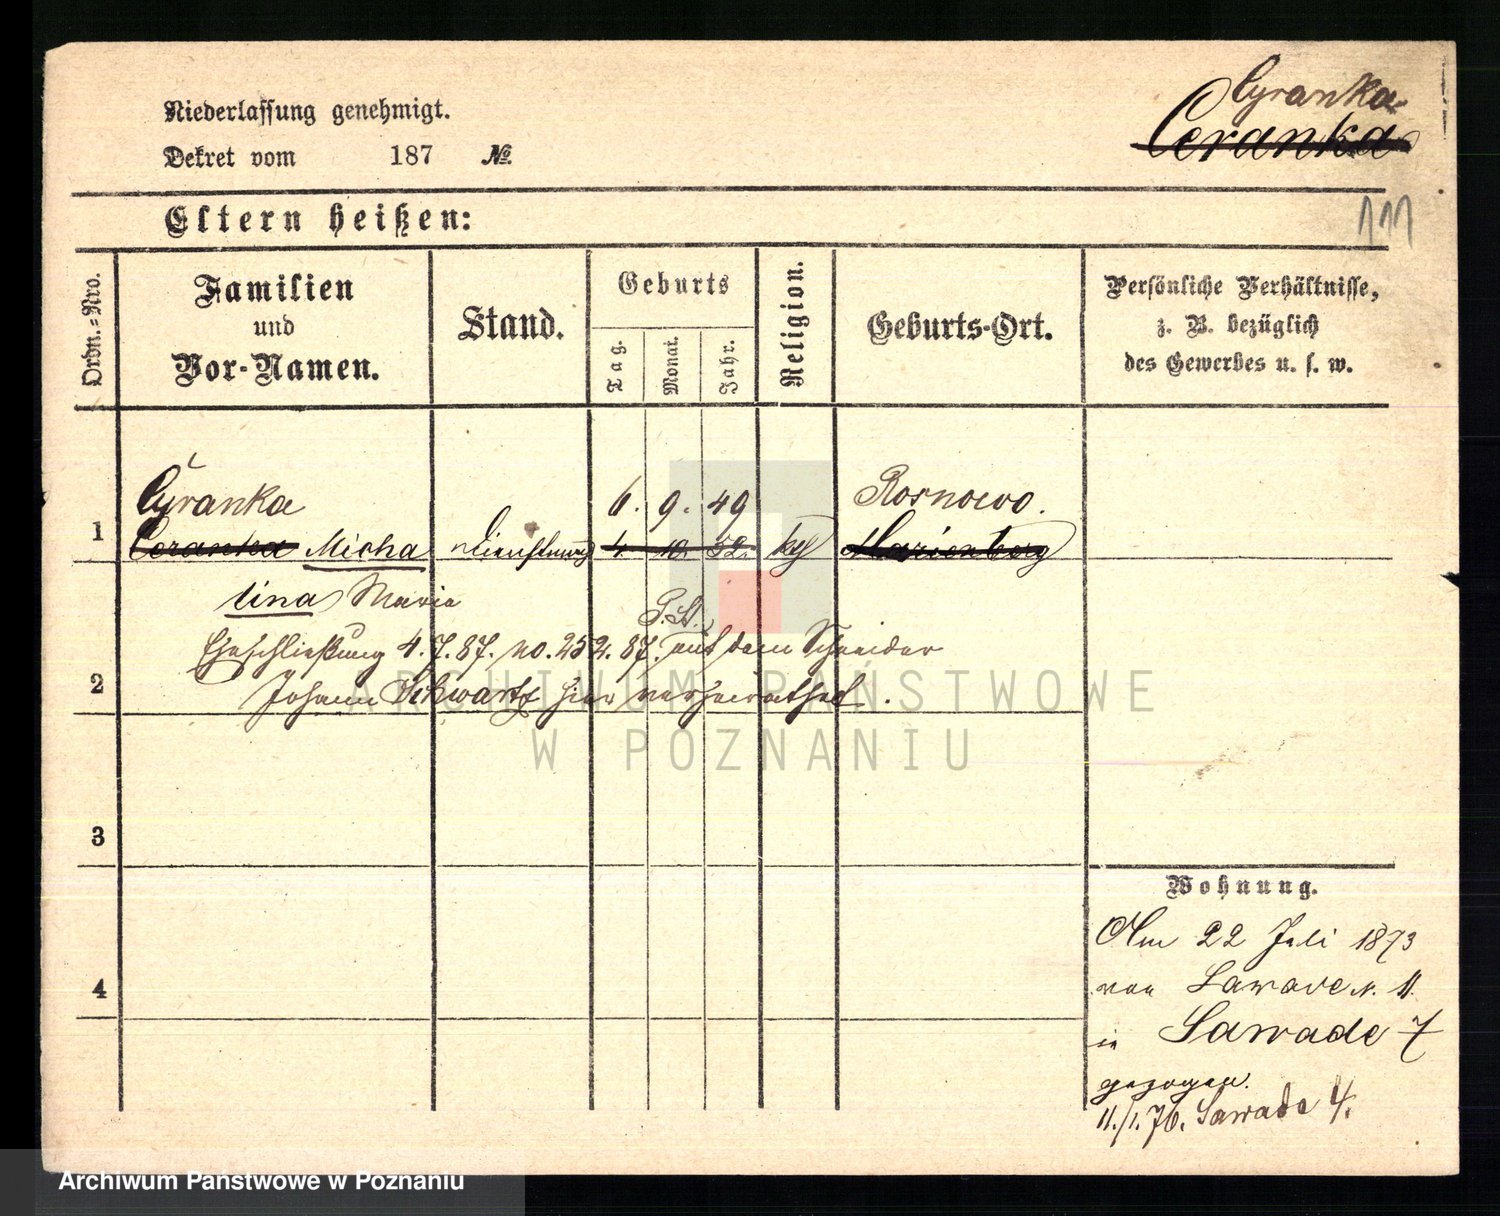 Cyranka
Niederlassung genehmigt.
Ceranka
Dekret vom 187 №
Eltern heißen:
111
Ordn.-Nro.
Familien
und
Vor-Namen.
Stand.
Geburts
Tag.
Monat.
Jahr.
Religion.
Geburts-Ort.
Persönliche Verhältnisse,
z. B. bezüglich
des Gewerbes u. s. w.
Cyranka 6. 9. 49 Rosnowo.
1 Ceranka Micha 4. 10. 52. kth Marienberg
lina Maria
P. St.
Eheschließung 4. 7. 87. no. 252. 87. mit dem Schneider
2 Johann Schwartz hier verheirathet.
3
4
Wohnung.
Am 22 Juli 1873
von Sawade N. 11.
in Sawade 7
gezogen.
11./1. 76. Sawade 4.
ARCHIWUM PAŃSTWOWE
W POZNANIU
Archiwum Państwowe w Poznaniu